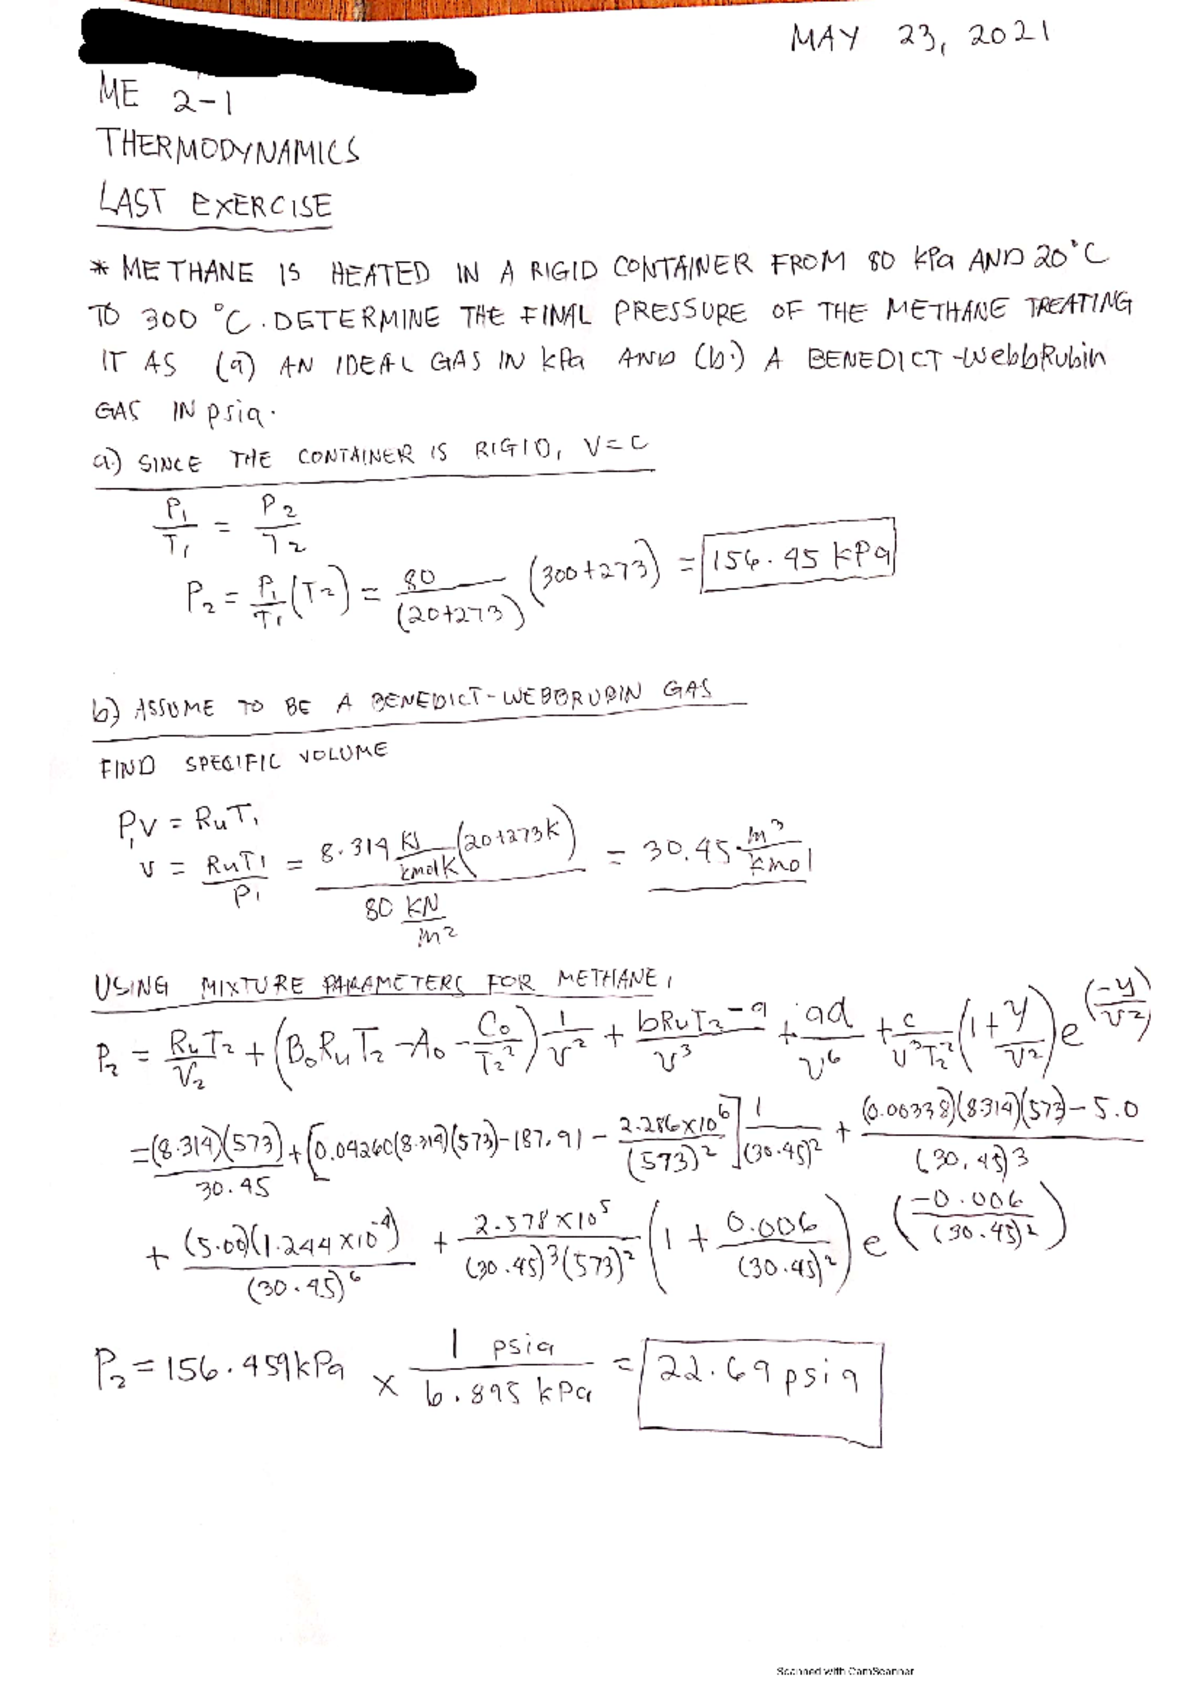 MAY 23, 2021
ME 2-1
THERMODYNAMICS
LAST EXERCISE
* METHANE IS HEATED IN A RIGID CONTAINER FROM 80 kPa AND 20°C
TO 300 °C. DETERMINE THE FINAL PRESSURE OF THE METHANE TREATING
IT AS (a) AN IDEAL GAS IN kPa AND (b.) A BENEDICT-WebbRubin
GAS IN psia.
a.) SINCE THE CONTAINER IS RIGID, V=C
P₁/T₁ = P₂/T₂
P₂ = P₁/T₁ (T₂) = 80/(20+273) (300+273) = 156.45 kPa
b) ASSUME TO BE A BENEDICT-WEBBRUBIN GAS
FIND SPECIFIC VOLUME
P₁V = RuT₁
V = RuT₁/P₁ = 8.314 KJ/kmolK (20+273K) / 80 KN/m² = 30.45 m³/kmol
USING MIXTURE PARAMETERS FOR METHANE,
P₂ = RuT₂/V₂ + (B₀RuT₂ - A₀ - C₀/T₂²) 1/V² + bRuT₂-a/V³ + ad/V⁶ + c/V³T₂² (1+γ/V²) e^(-γ/V²)
= (8.314)(573)/30.45 + [0.04260(8.314)(573)-187.91 - 2.286×10⁶/(573)²] 1/(30.45)² + (0.00338)(8.314)(573)-5.0/(30.45)3
+ (5.00)(1.244×10⁻⁴)/(30.45)⁶ + 2.578×10⁵/(30.45)³(573)² (1 + 0.006/(30.45)²) e^(-0.006/(30.45)²)
P₂ = 156.459kPa × 1 psia/6.895 kPa = 22.69 psia
Scanned with CamScanner